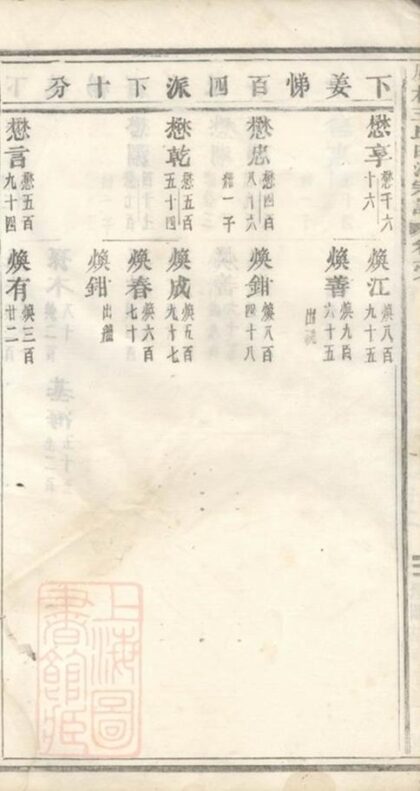 下姜悌百四派下十分
懋享 懋千六十六
懋忠 懋四百八十六 紹一子
懋乾 懋五百五十四
懋言 懋五百九十四
煥江 煥八百九十五
煥善 煥九百六十五 出
煥鉗 煥八百四十八
煥成 煥五百九十七
煥春 煥六百七十四
煥鉗 出繼
煥有 煥三百廿二
上海圖書館